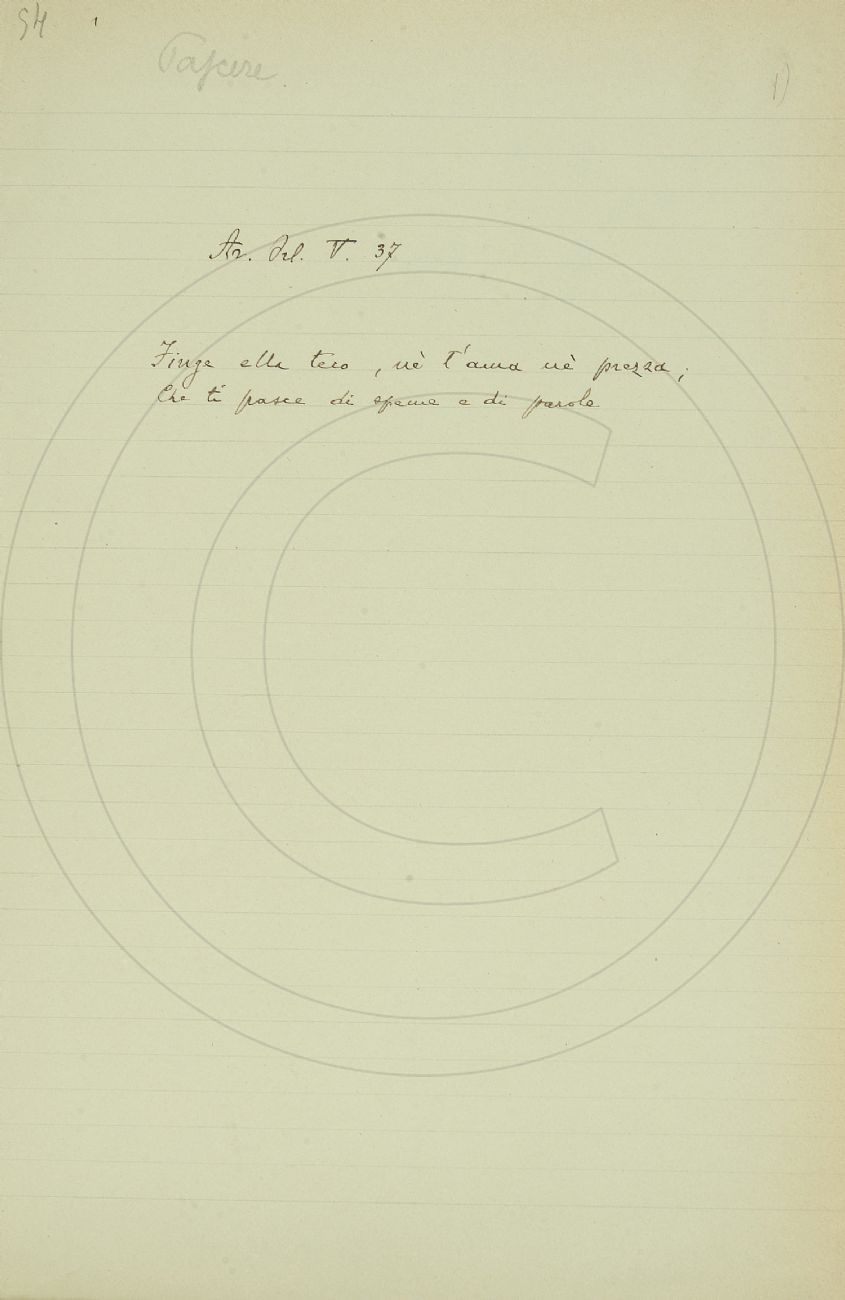 94
Pascere
1)
Ar. Orl. V. 37
Finge ella teco, nè t'ama nè prezza;
Che ti pasce di speme e di parole